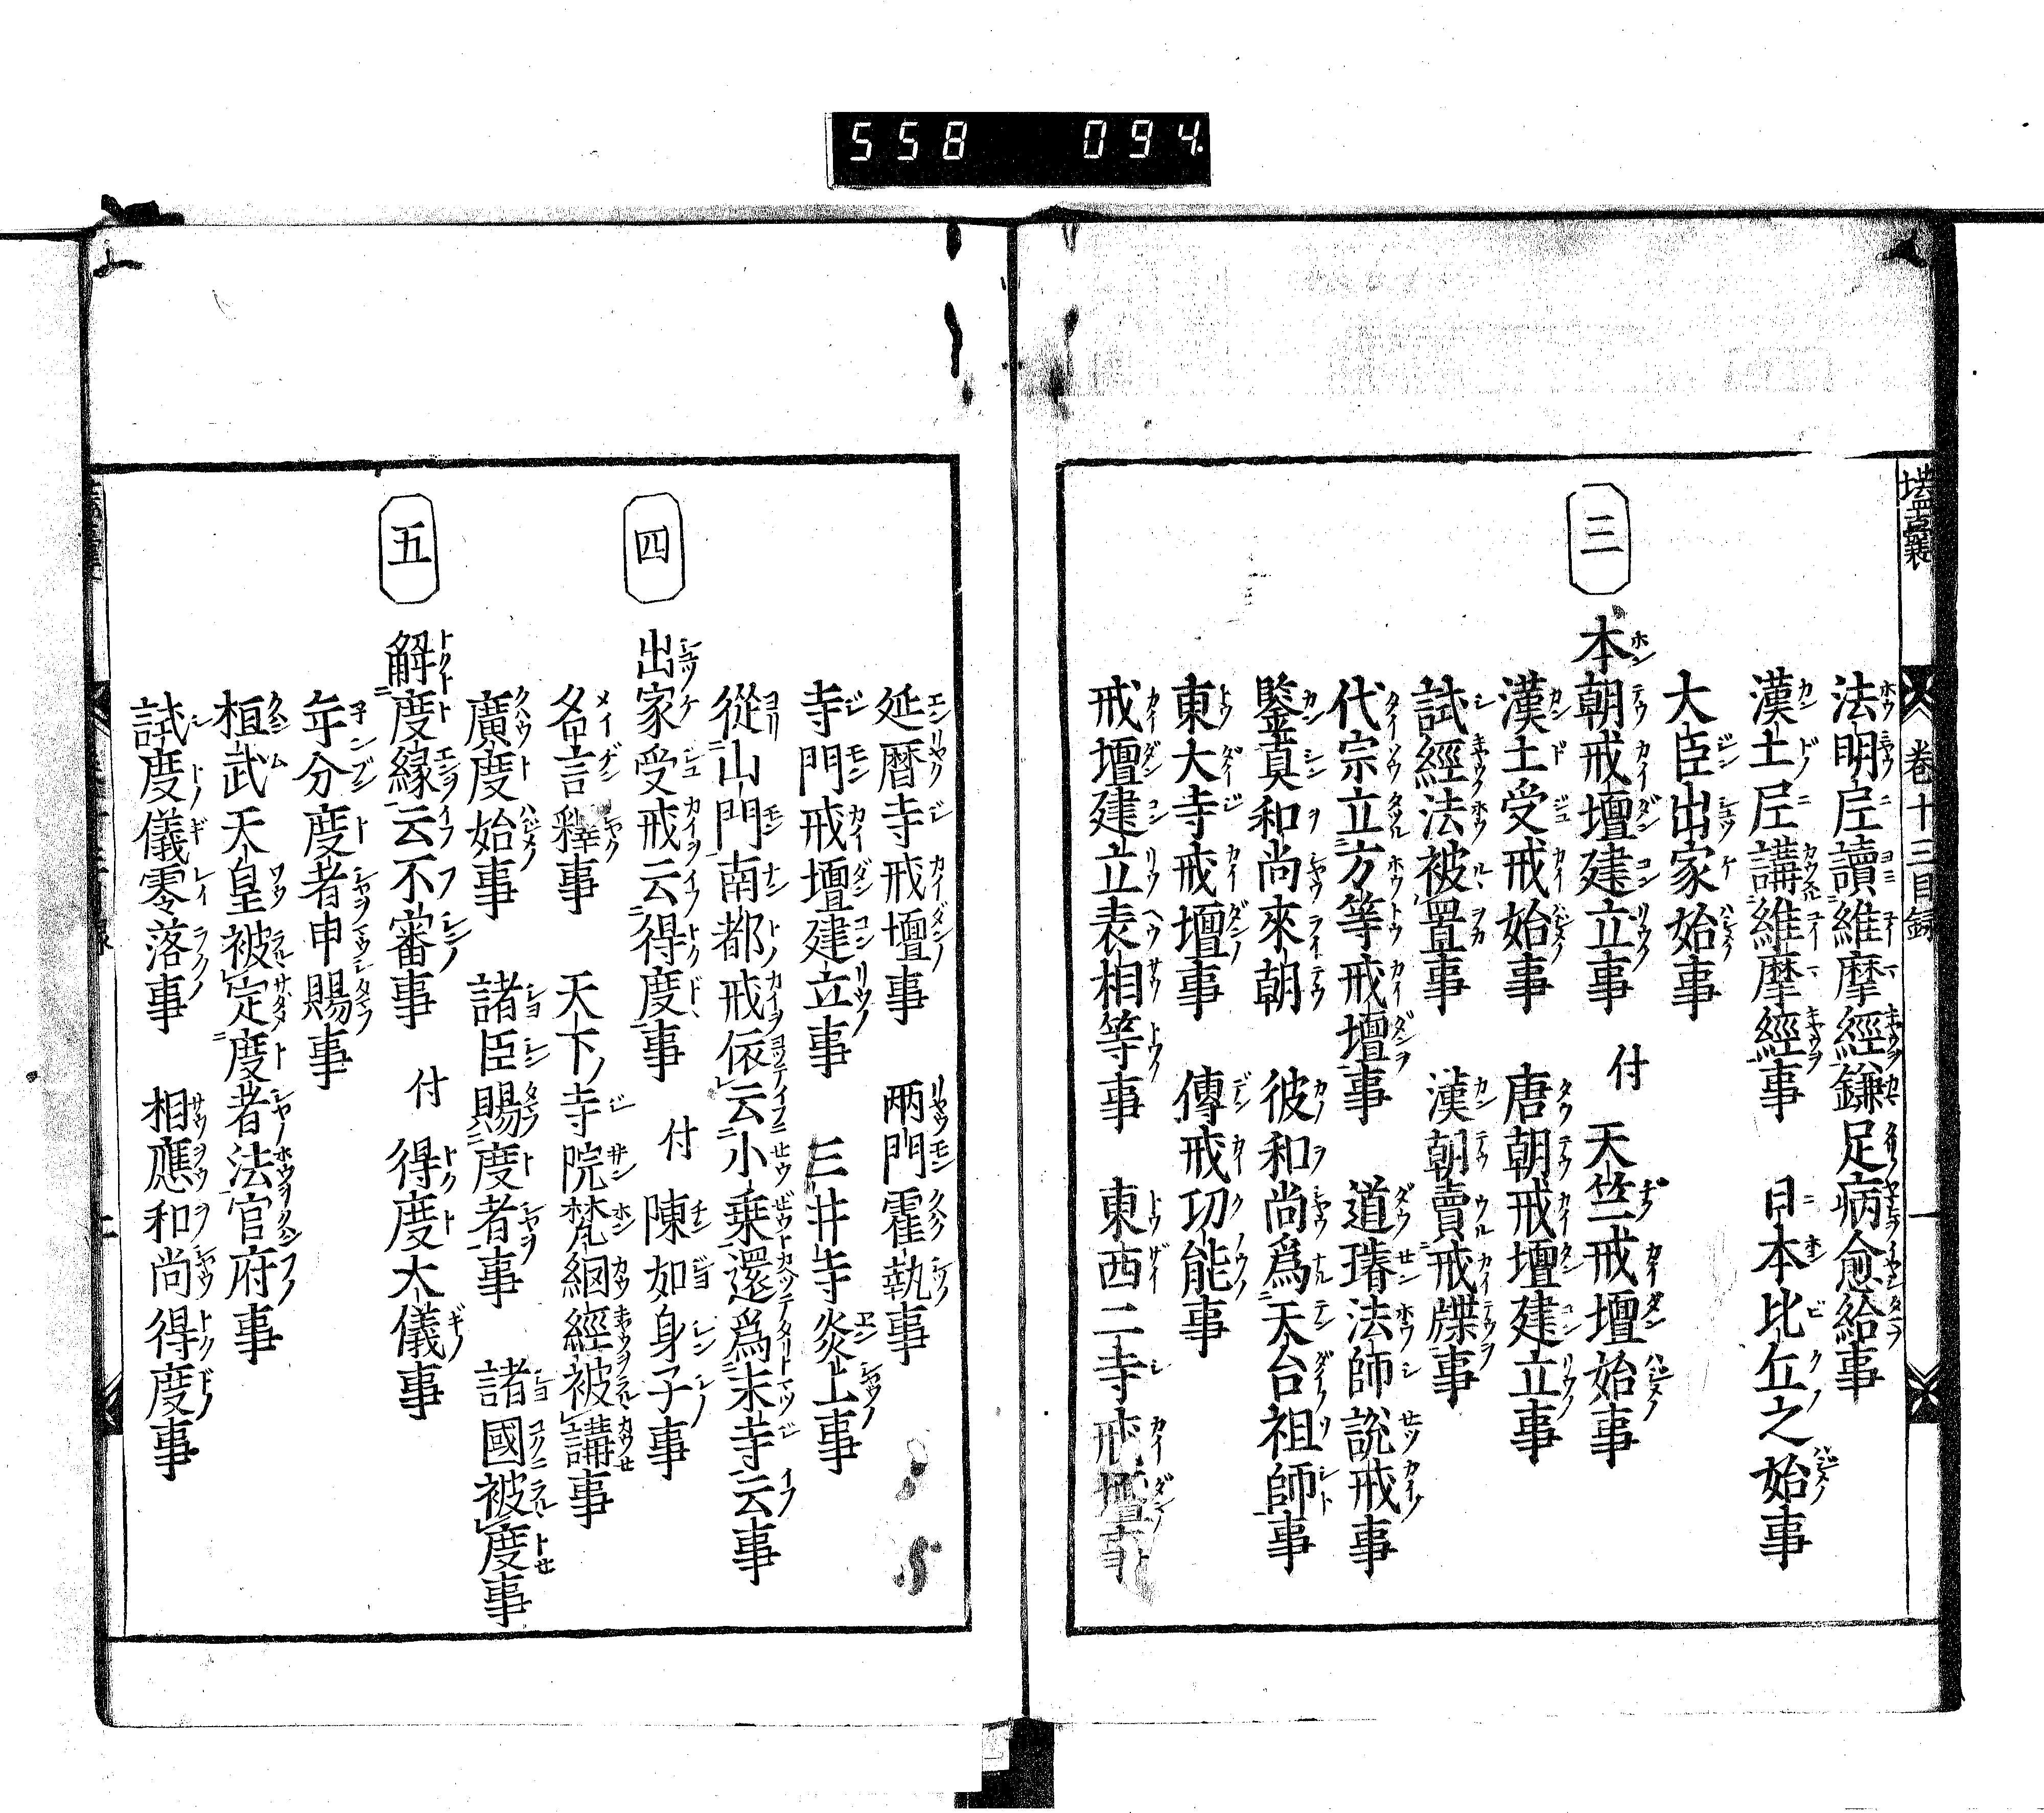 558 094.
壒囊 卷十三目録 一
法明尼讀維摩經鎌足病愈給事
漢土尼講維摩經事 日本比丘之始事
大臣出家始事
三 本朝戒壇建立事 付 天竺戒壇始事
漢土受戒始事 唐朝戒壇建立事
試經法被置事 漢朝賣戒牒事
代宗立方等戒壇事 道璿法師説戒事
鑒真和尚來朝 彼和尚爲天台祖師事
東大寺戒壇事 傳戒功能事
戒壇建立表相等事 東西二寺戒壇事
延暦寺戒壇事 兩門霍執事
寺門戒壇建立事 三井寺炎上事
從山門南都戒依云小乗還爲末寺云事
四 出家受戒云得度事 付 陳如身子事
名言釋事 天下ノ寺院梵網經被講事
廣度始事 諸臣賜度者事 諸國被度事
五 解度縁云不審事 付 得度大儀事
年分度者申賜事
桓武天皇被定度者法官府事
試度儀零落事 相應和尚得度事